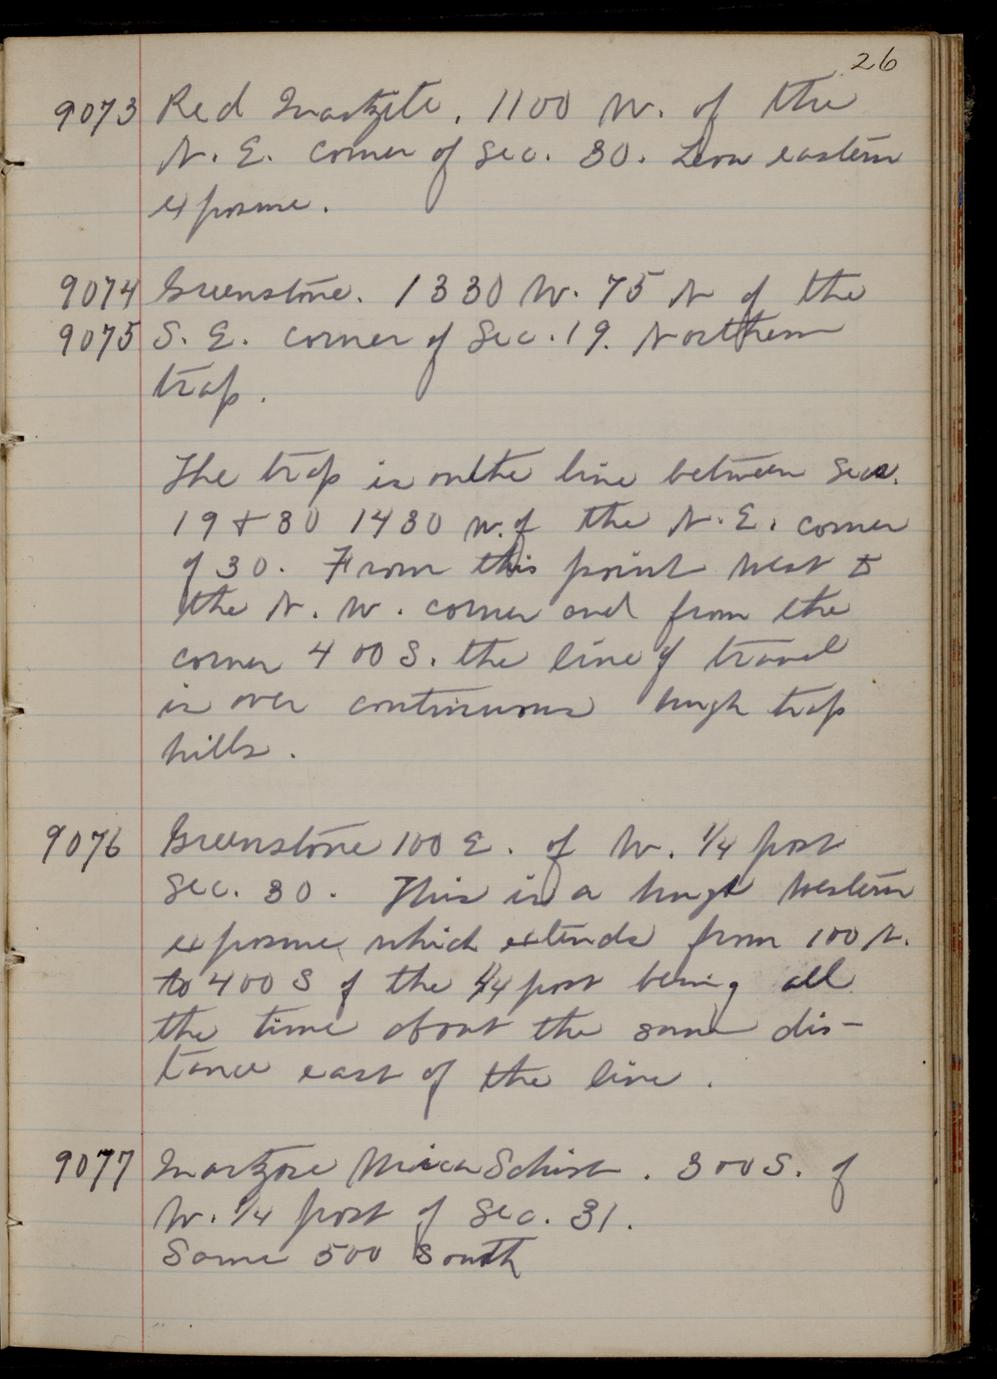 26
9073 Red Quartzite. 1100 W. of the
N. E. corner of Sec. 30. Low eastern
exposure.
9074 Greenstone. 1330 W. 75 N of the
9075 S. E. corner of Sec. 19. Northern
trap.
The trap is on the line between Secs.
19 & 30 1430 W. of the N. E. corner
of 30. From this point West to
the N. W. corner and from the
corner 400 S. the line of travel
is over continuous high trap
hills.
9076 Greenstone 100 E. of W. 1/4 post
Sec. 30. This is a high Western
exposure which extends from 100 N.
to 400 S of the 1/4 post being all
the time about the same dis-
tance east of the line.
9077 Quartzose Mica Schist. 300 S. of
W. 1/4 post of Sec. 31.
Same 500 South